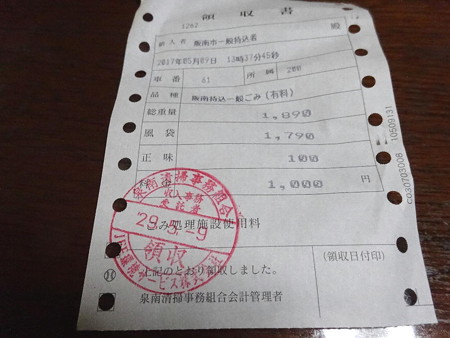 領収書
1202
殿
搬入者 阪南市一般持込者
2017年05月09日 13時37分45秒
車番 61 所属 200
品種 阪南持込一般ごみ(有料)
総重量 1,890
風袋 1,790
正味 100
1,000 円
ごみ処理施設使用料
上記のとおり領収しました。
(領収日付印)
泉南清掃事務組合会計管理者
泉南清掃事務組合
収入事務
受託者
29.5.-9
領収
C030703008 10509131